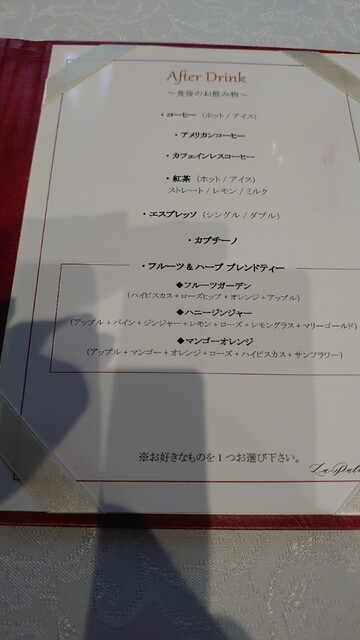 After Drink
～食後のお飲み物～
・コーヒー（ホット / アイス）
・アメリカンコーヒー
・カフェインレスコーヒー
・紅茶（ホット / アイス）
ストレート / レモン / ミルク
・エスプレッソ（シングル / ダブル）
・カプチーノ
・フルーツ & ハーブ ブレンドティー
◆フルーツガーデン
（ハイビスカス + ローズヒップ + オレンジ + アップル）
◆ハニージンジャー
（アップル + パイン + ジンジャー + レモン + ローズ + レモングラス + マリーゴールド）
◆マンゴーオレンジ
（アップル + マンゴー + オレンジ + ローズ + ハイビスカス + サンフラワー）
※お好きなものを１つお選び下さい。